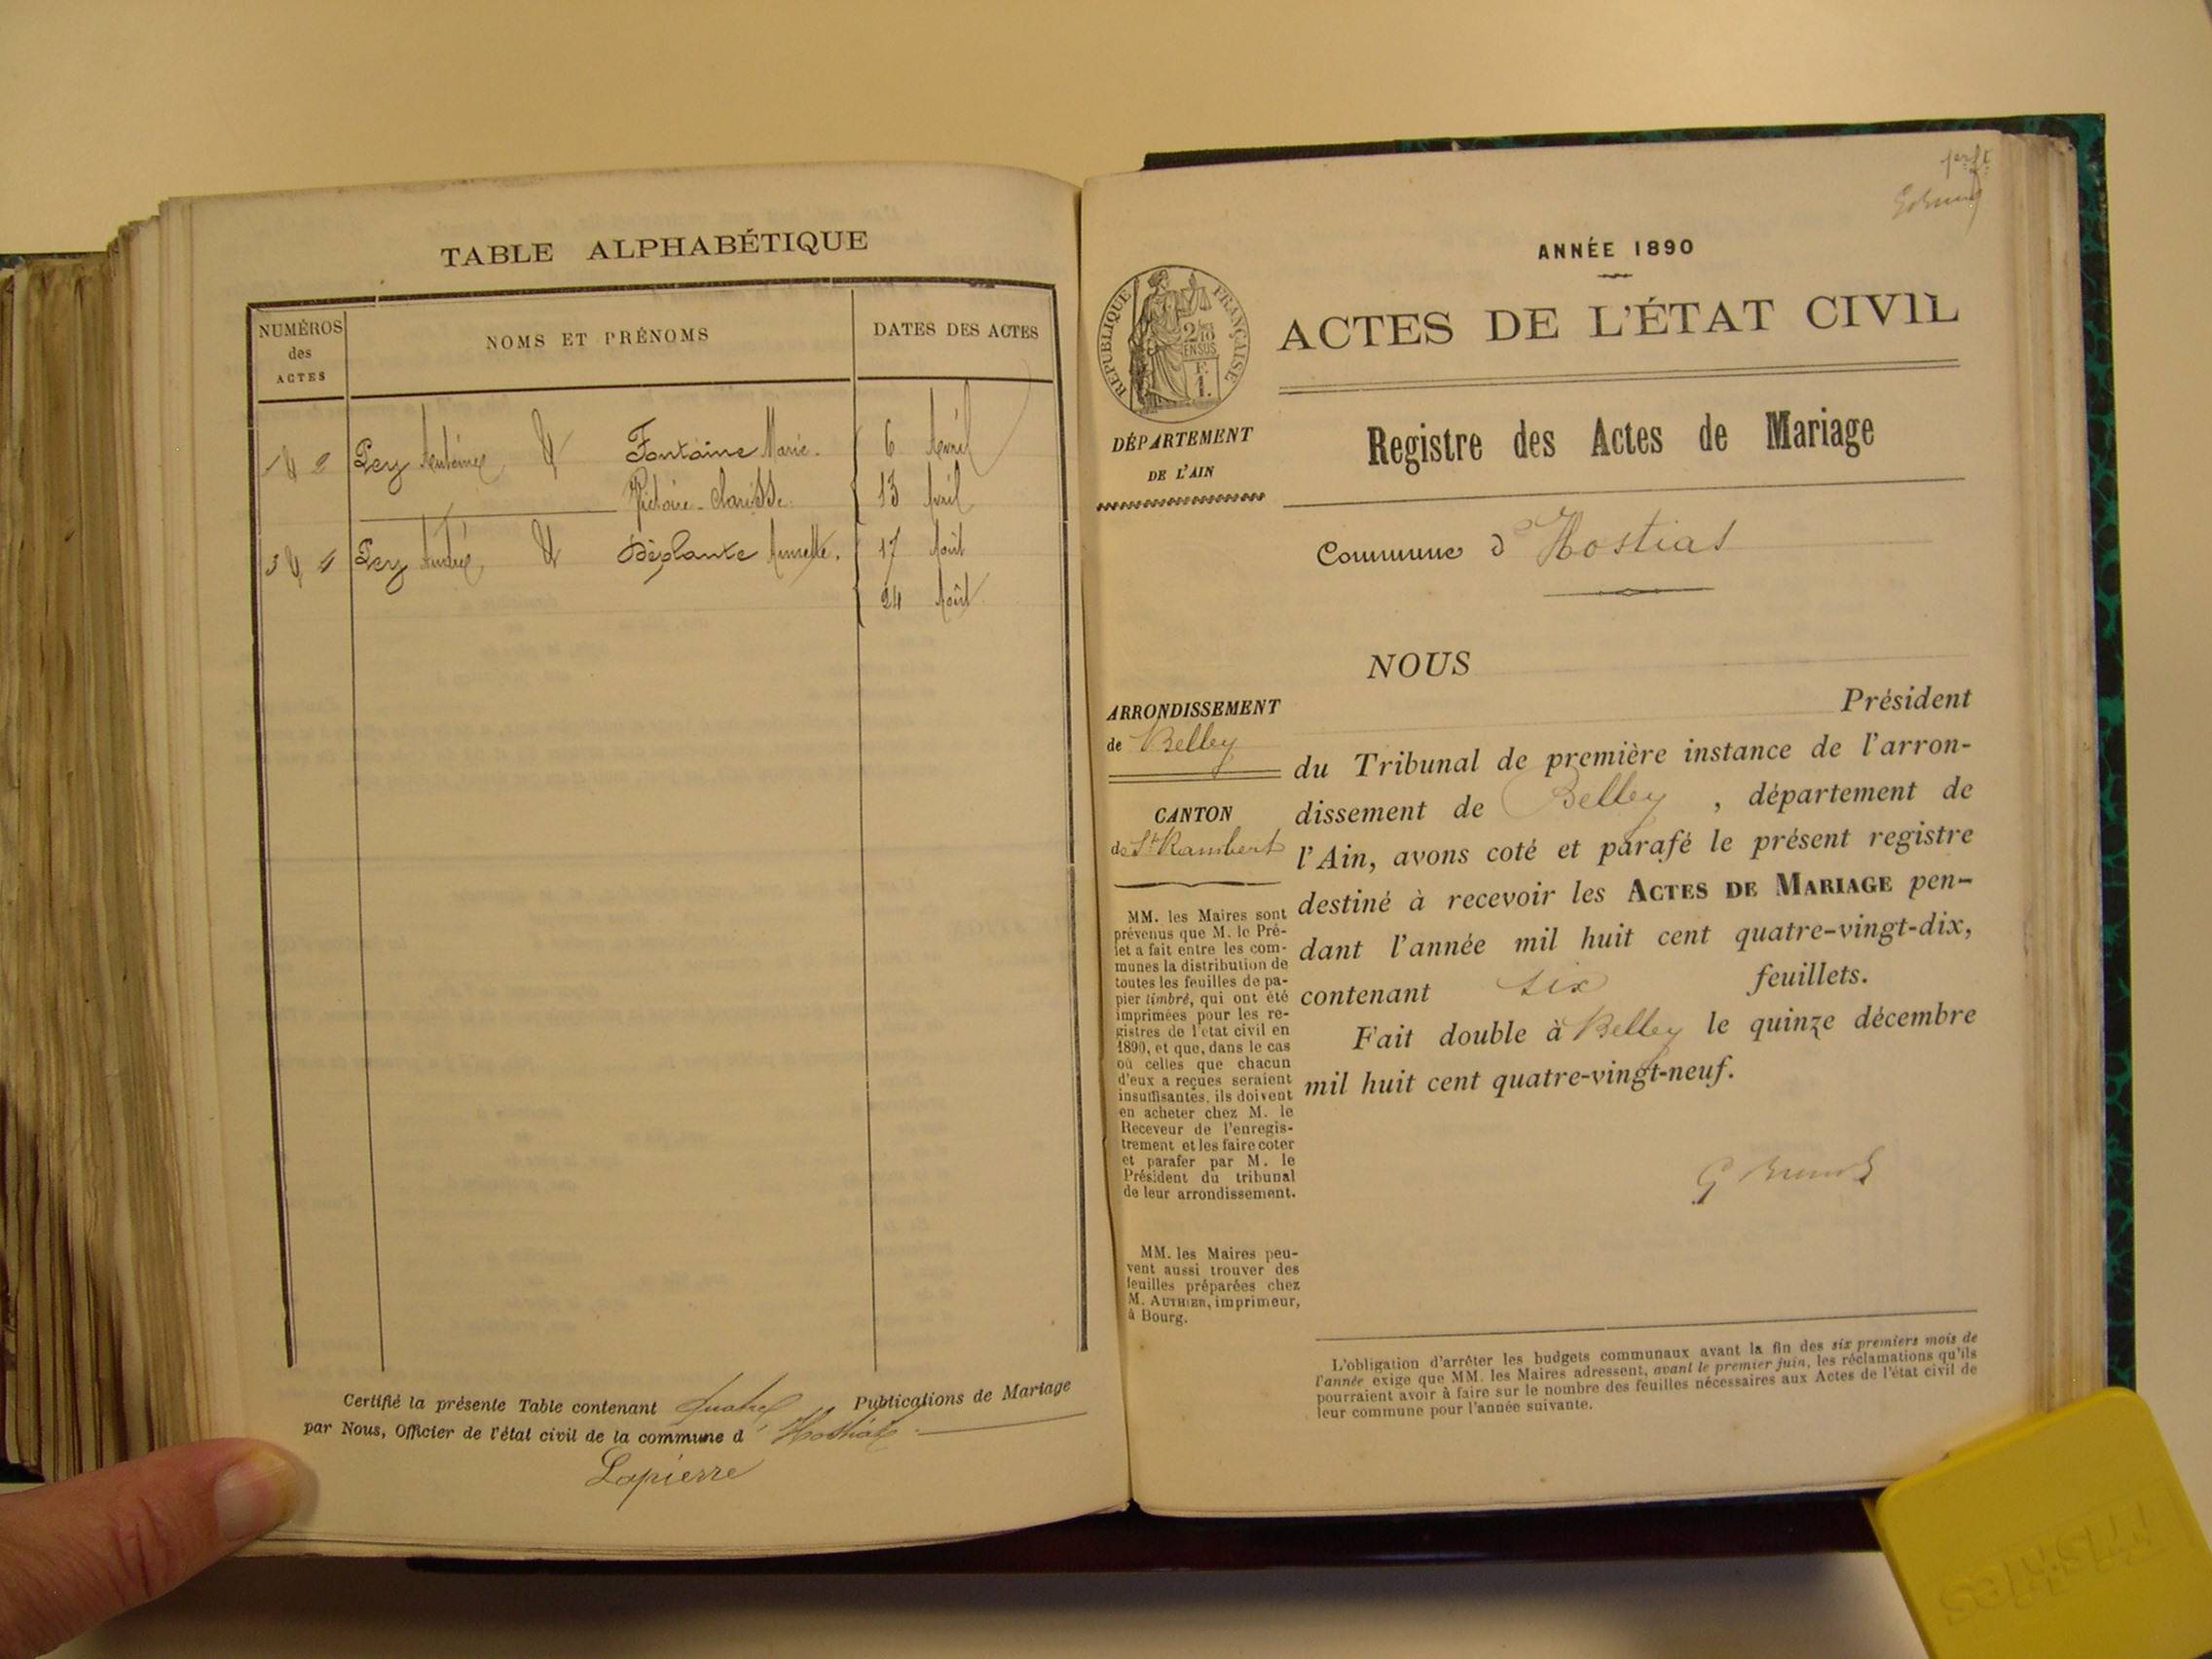 TABLE ALPHABÉTIQUE
NUMÉROS des ACTES
NOMS ET PRÉNOMS
DATES DES ACTES
1 & 2 Pery Antoine & Fontaine Marie 6 Avril
Victoire Clarisse 13 Avril
3 & 4 Pery André & Déplante Annette. 17 Août
24 Août
Certifié la présente Table contenant quatre Publications de Mariage
par Nous, Officier de l'état civil de la commune d' Hostias
Lapierre
ANNÉE 1890
RÉPUBLIQUE FRANÇAISE
ACTES DE L'ÉTAT CIVIL
DÉPARTEMENT
DE L'AIN
Registre des Actes de Mariage
Commune d'Hostias
NOUS
Président
ARRONDISSEMENT
de Belley
CANTON
de St Rambert
du Tribunal de première instance de l'arron-
dissement de Belley, département de
l'Ain, avons coté et parafé le présent registre
destiné à recevoir les ACTES DE MARIAGE pen-
dant l'année mil huit cent quatre-vingt-dix,
contenant six feuillets.
Fait double à Belley le quinze décembre
mil huit cent quatre-vingt-neuf.
MM. les Maires sont
prévenus que M. le Pré-
fet a fait entre les com-
munes la distribution de
toutes les feuilles de pa-
pier timbré, qui ont été
imprimées pour les re-
gistres de l'état civil en
1890, et que, dans le cas
où celles que chacun
d'eux a reçues seraient
insuffisantes, ils doivent
en acheter chez M. le
Receveur de l'enregis-
trement et les faire coter
et parafer par M. le
Président du tribunal
de leur arrondissement.
MM. les Maires peu-
vent aussi trouver des
feuilles préparées chez
M. AUTHIER, imprimeur,
à Bourg.
L'obligation d'arrêter les budgets communaux avant la fin des six premiers mois de
l'année exige que MM. les Maires adressent, avant le premier juin, les réclamations qu'ils
pourraient avoir à faire sur le nombre des feuilles nécessaires aux Actes de l'état civil de
leur commune pour l'année suivante.